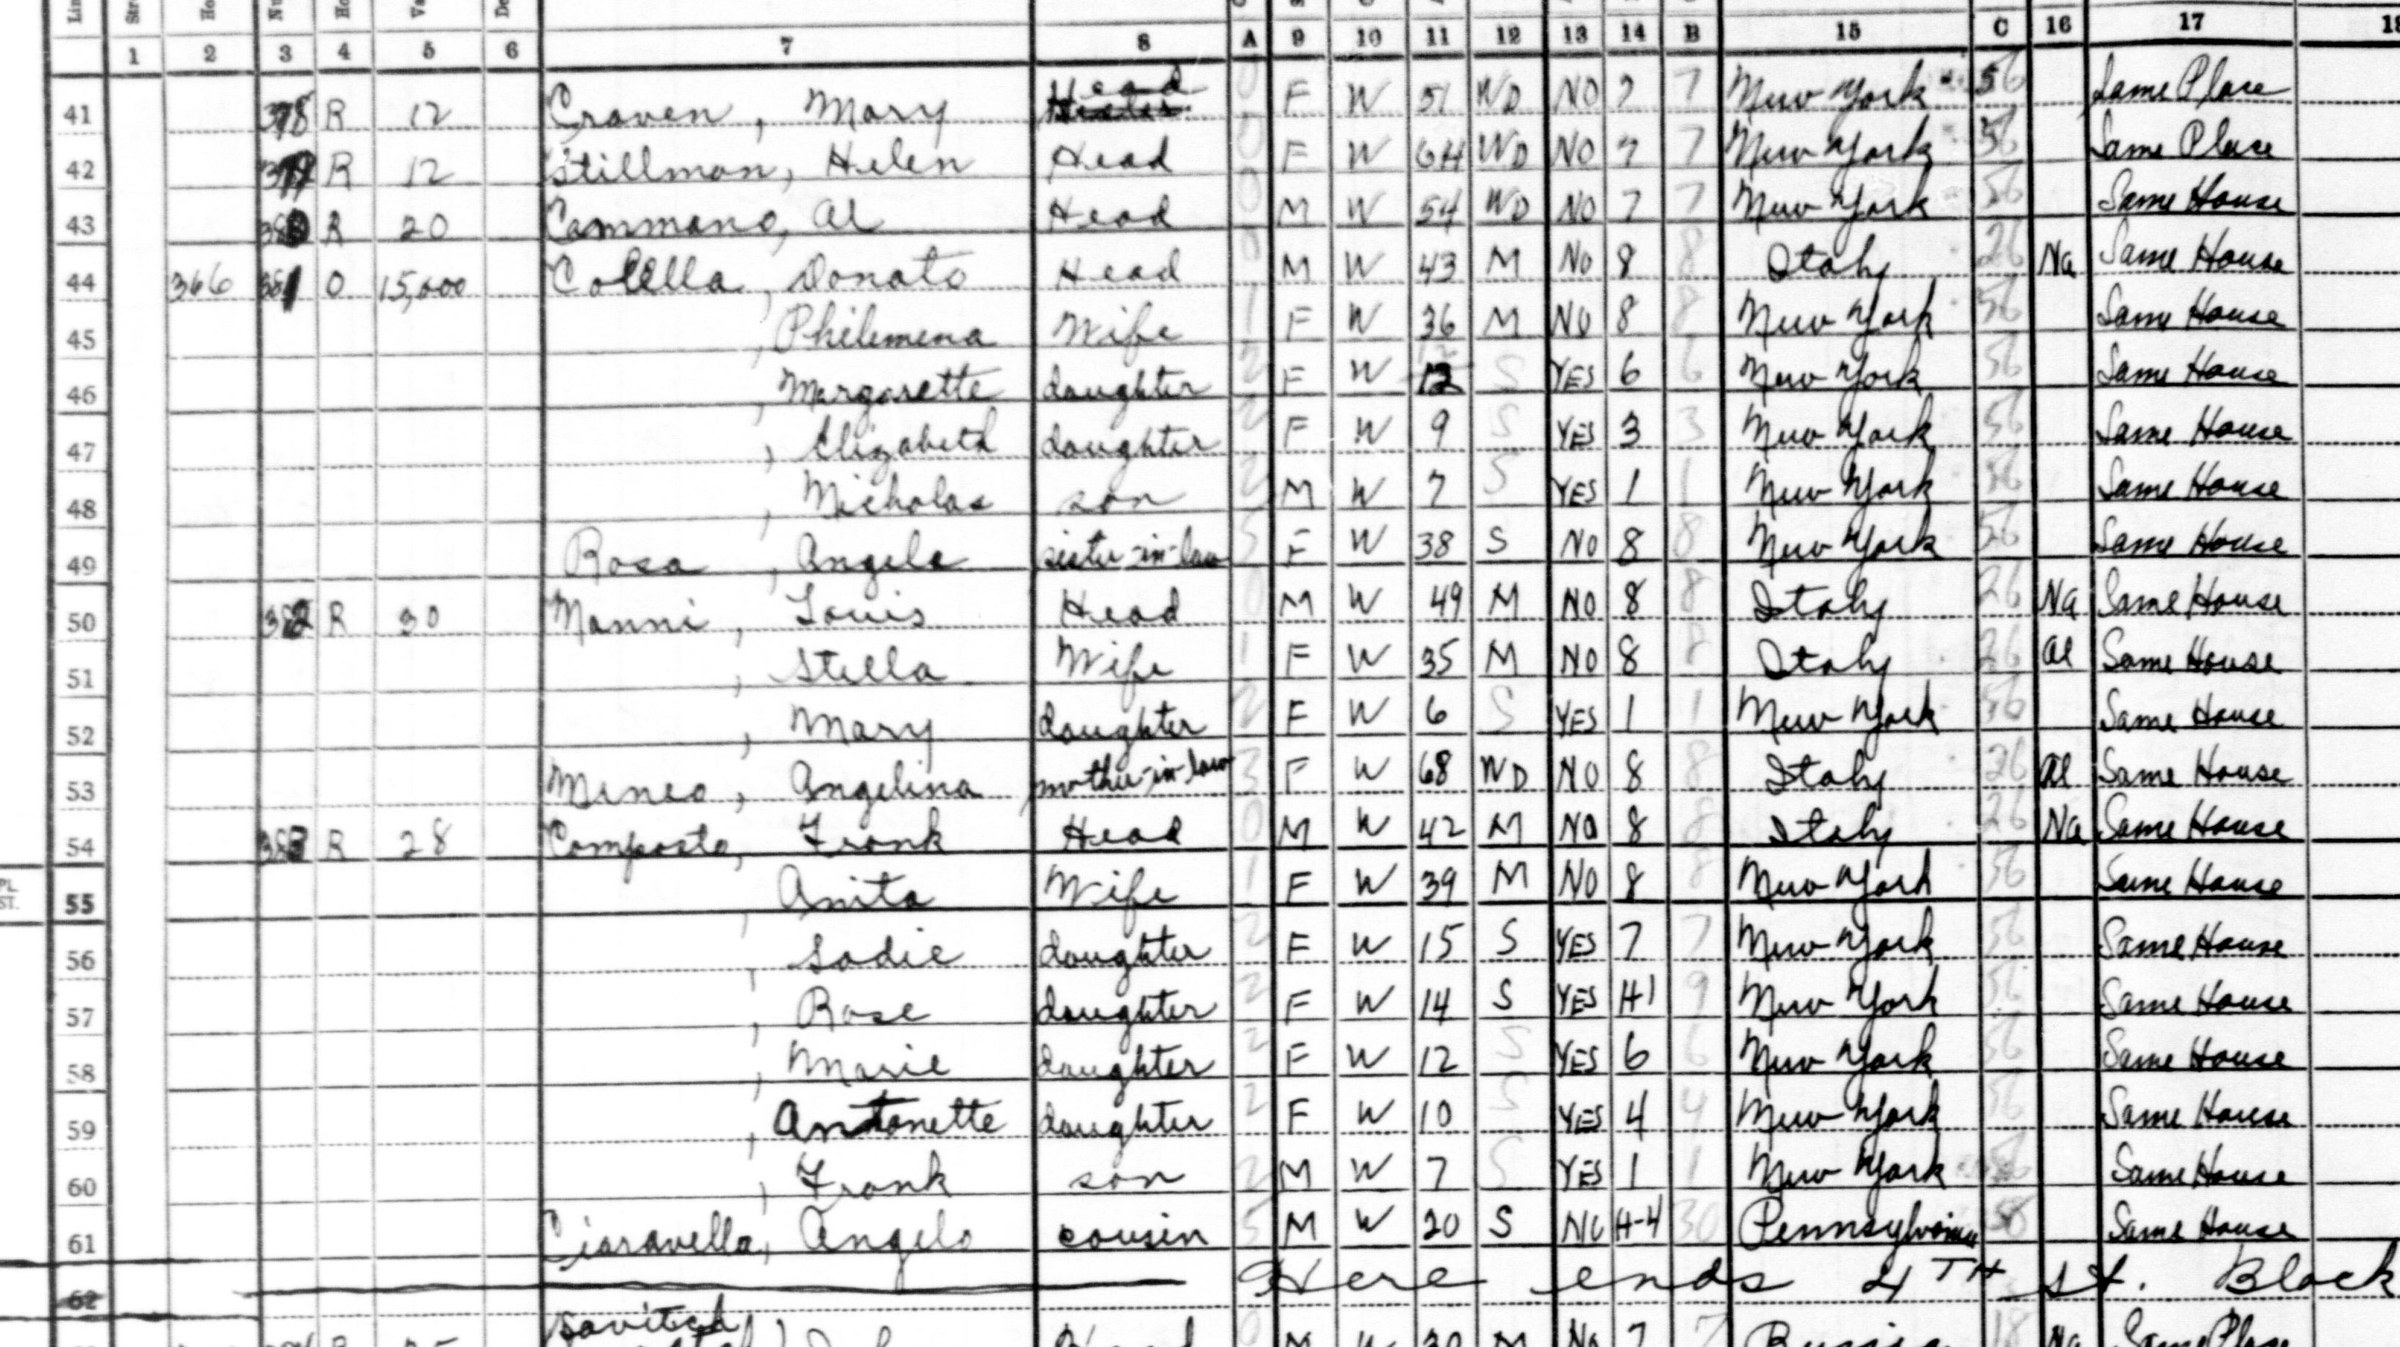 1 2 3 4 5 6 7 8 A 9 10 11 12 13 14 B 15 C 16 17
41 378 R 12 Craven, Mary Head 0 F W 51 WD NO 7 7 New York 56 Same Place
42 379 R 12 Stillman, Helen Head 0 F W 64 WD NO 7 7 New York 56 Same Place
43 380 R 20 Cammano, Al Head 0 M W 54 WD NO 7 7 New York 56 Same House
44 366 381 O 15,000 Colella, Donato Head 0 M W 43 M NO 8 8 Italy 26 Na Same House
45 , Philemena Wife 1 F W 36 M NO 8 8 New York 56 Same House
46 , Margarette daughter 2 F W 12 S YES 6 6 New York 56 Same House
47 , Elizabeth daughter 2 F W 9 S YES 3 3 New York 56 Same House
48 , Nicholas son 2 M W 7 S YES 1 1 New York 56 Same House
49 Rosa, Angela sister-in-law 5 F W 38 S NO 8 8 New York 56 Same House
50 382 R 30 Manni, Louis Head 0 M W 49 M NO 8 8 Italy 26 Na Same House
51 , Stella Wife 1 F W 35 M NO 8 8 Italy 26 Al Same House
52 , Mary daughter 2 F W 6 S YES 1 1 New York 56 Same House
53 Mineo, Angelina mother-in-law 3 F W 68 WD NO 8 8 Italy 26 Al Same House
54 383 R 28 Composto, Frank Head 0 M W 42 M NO 8 8 Italy 26 Na Same House
55 , Anita Wife 1 F W 39 M NO 8 8 New York 56 Same House
56 , Sadie daughter 2 F W 15 S YES 7 7 New York 56 Same House
57 , Rose daughter 2 F W 14 S YES H1 9 New York 56 Same House
58 , Marie daughter 2 F W 12 S YES 6 6 New York 56 Same House
59 , Antonette daughter 2 F W 10 S YES 4 4 New York 56 Same House
60 , Frank son 2 M W 7 S YES 1 1 New York 56 Same House
61 Ciaravella, Angelo cousin 5 M W 20 S NO H-4 30 Pennsylvania 58 Same House
62 Here ends 4TH St. Block
Savitch Head 0 M W 30 M No 7 7 Russia 18 Na Same Place